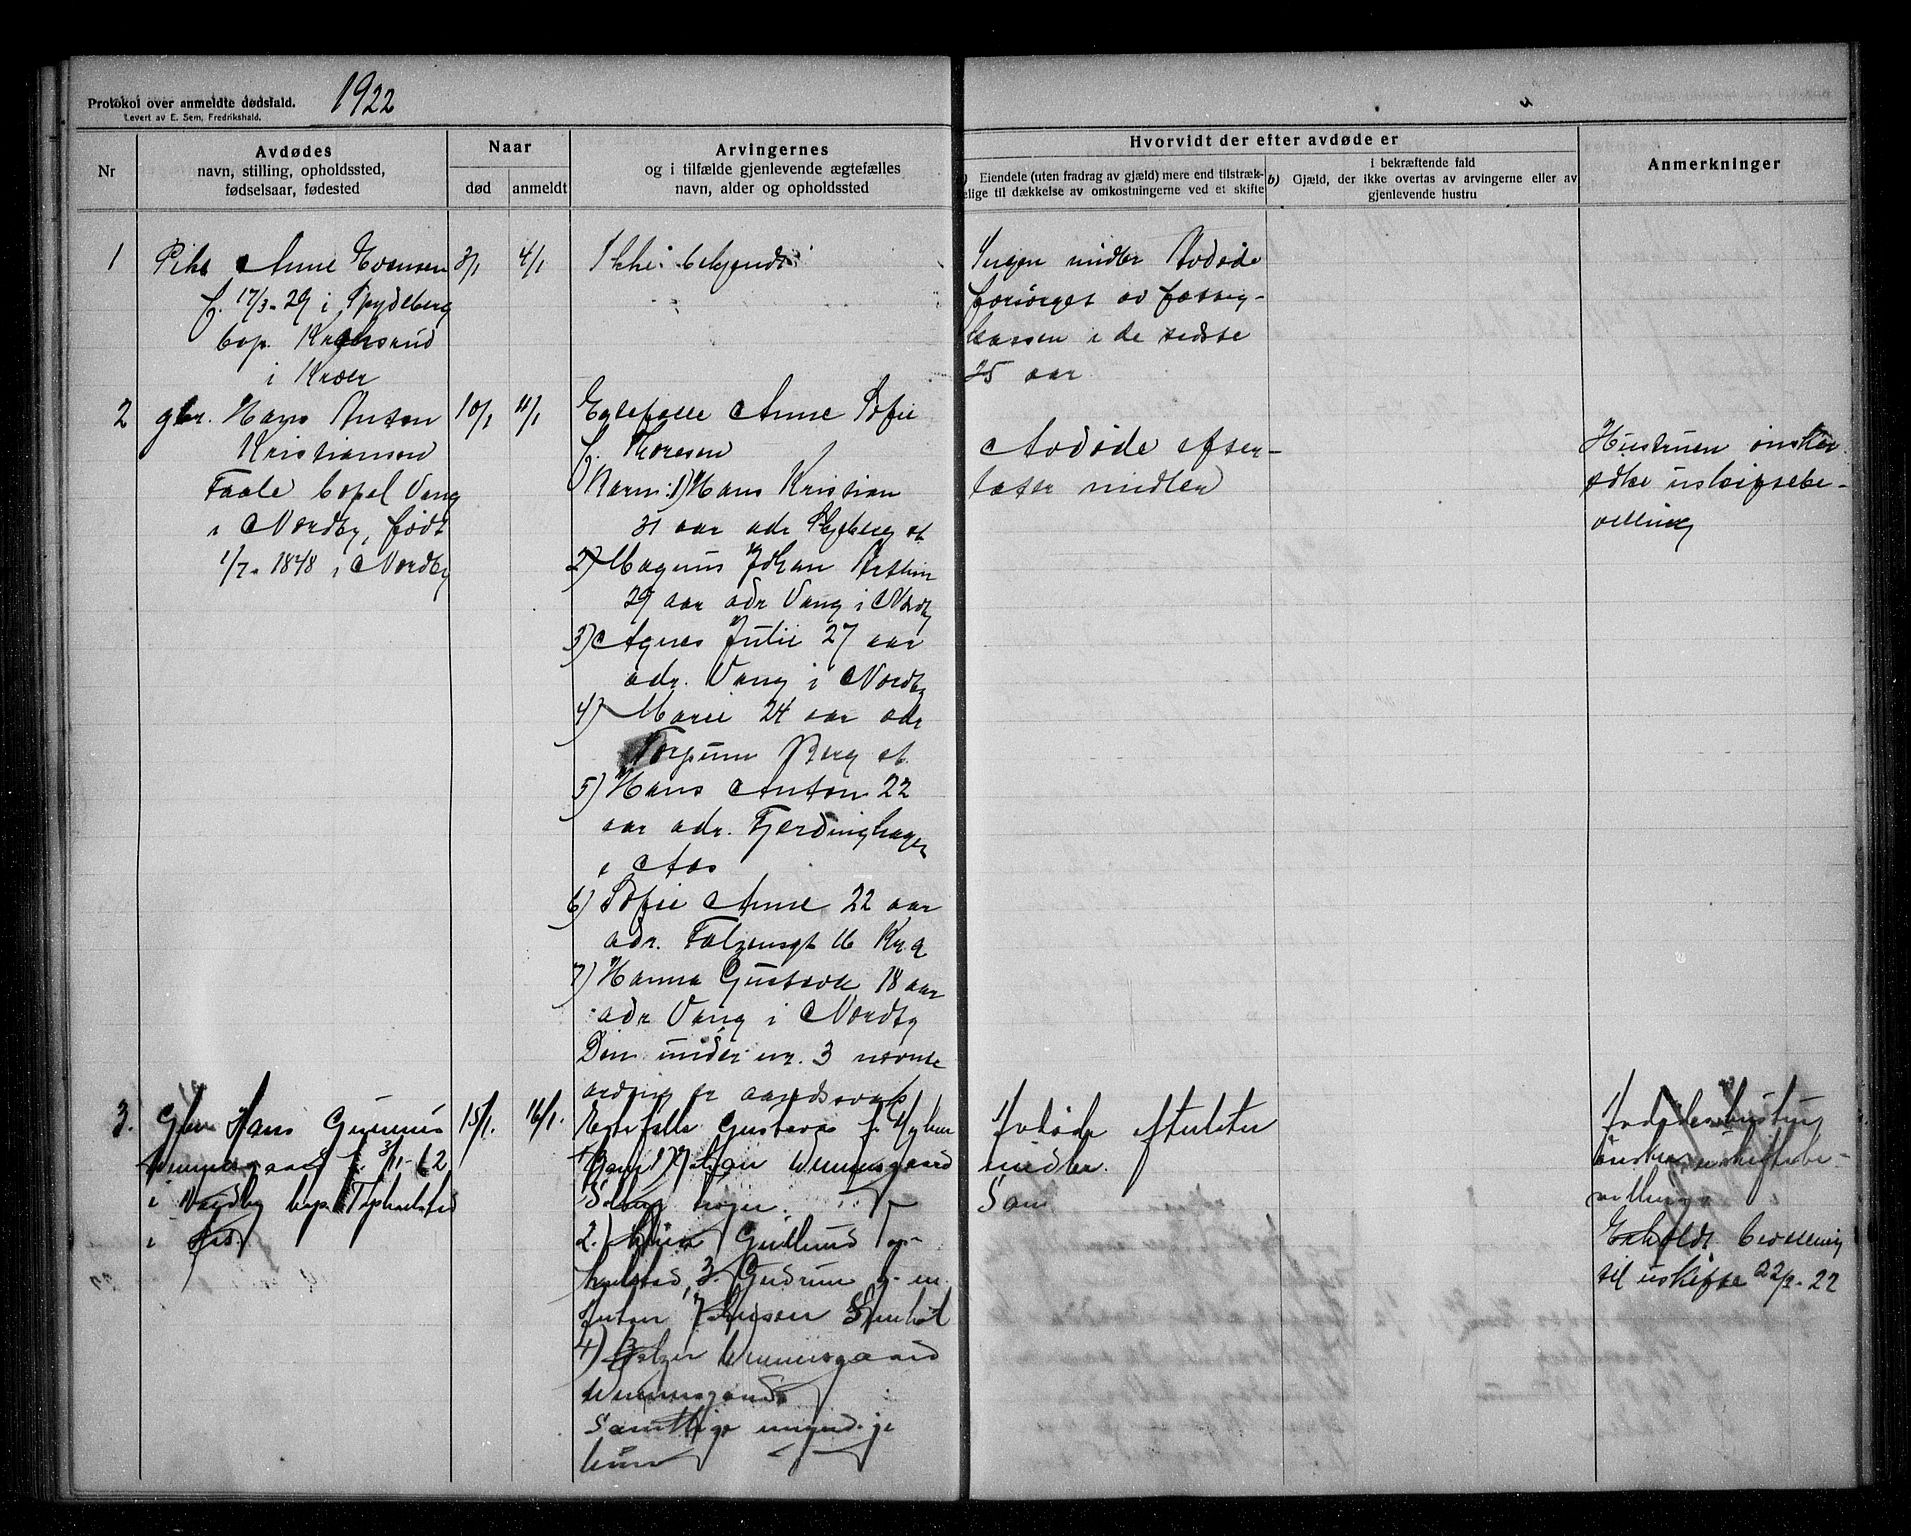 Protokol over anmeldte dødsfald.
Levert av E. Sem, Fredrikshald.
1922
Nr
Avdødes
navn, stilling, opholdssted,
fødselsaar, fødested
Naar
død
anmeldt
Arvingernes
og i tilfælde gjenlevende ægtefælles
navn, alder og opholdssted
Hvorvidt der efter avdøde er
Eiendele (uten fradrag av gjæld) mere end tilstræk-
elige til dækkelse av omkostningerne ved et skifte
I bekræftende fald
b) Gjæld, der ikke overtas av arvingerne eller av
gjenlevende hustru
Anmerkninger
1
Pike Anne Evensen
f. 17/3-29 i Spydeberg
bop.
i Kroer
3/1
4/1
Ikke bekjendt
Ingen midler Avdøde
forsørget av fattig-
kassen i de sidste
25 aar
2
gbr. Hans Anton
Kristiansen
Faale bopel Vang
i Nordby, født
1/7-1848 i Nordby
10/1
11/1
Egtefælle Anne Sofie
f. Thoresen
Barn: 1) Hans Kristian
31 aar adr st
2) Magnus Johan
29 aar adr Vang i Nordby
3) Agnes Julie 27 aar
adr. Vang i Nordby
4) Marie 24 aar adr
Berg st
5) Hans Anton 22
aar adr. Fjerdinghagen
i Aas
6) Sofie Anne 22 aar
adr. Falsensgt 16 Kr.a
7) Hanna Gustava 18 aar
adr Vang i Nordby
Den under nr. 3 nævnte
arving er aandssvak
Avdøde efter-
later midler
Hustruen ønsker
at uskiftebe-
villing
3.
Gbr Hans Gunerius
Wennersgaard f. 3/11-62
i Nordby bop.
i Aas.
15/1.
16/1.
Egtefælle Gustava f.
Barn 1) Johan Wennersgaard
2.) Gullund
3. Gudrun g. m.
Anton Johansen
4) Wennersgaard
Wennersgaard
Samtlige myndige
Avdøde efterlater
midler.
Sam
Avdødes hustru
ønsker uskiftebe-
villing.
Erholdt bevilling
til uskifte 22/2-22